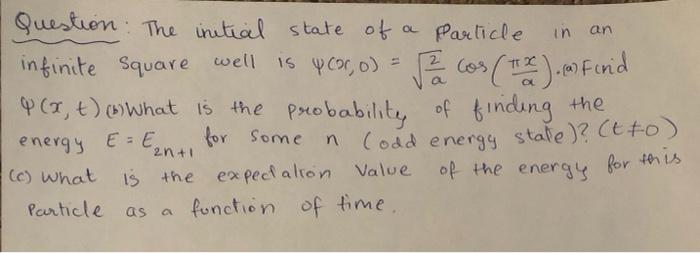 Question: The initial state of a Particle in an
infinite Square well is ψ(x,0) = √(2/a) cos(πx/a). (a) Find
Ψ(x,t) (b) What is the probability of finding the
energy E = E₂ₙ₊₁ for some n (odd energy state)? (t≠0)
(c) what is the expectation value of the energy for this
Particle as a function of time.